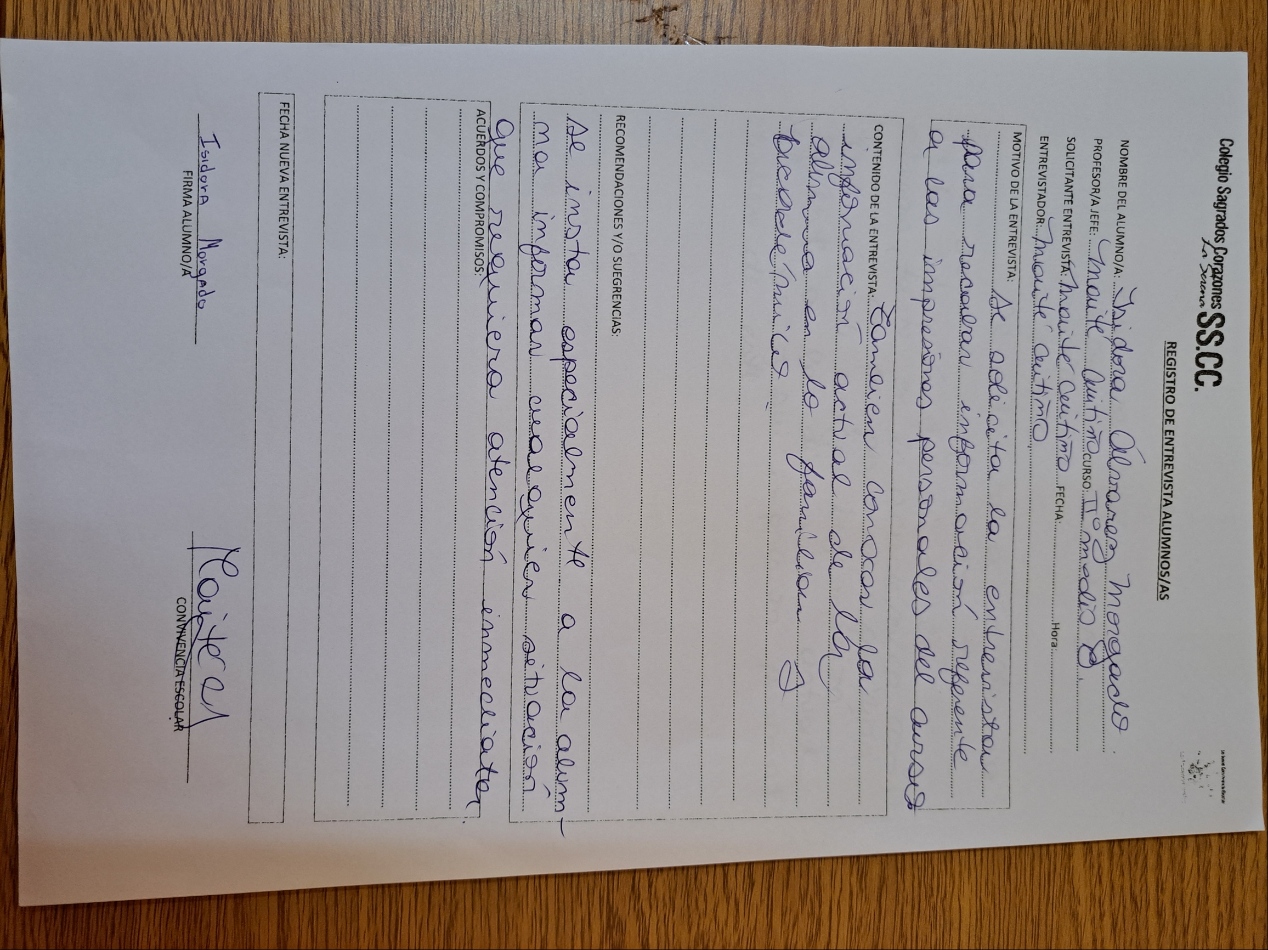 Colegio Sagrados Corazones SS.CC.
La Serena
REGISTRO DE ENTREVISTA ALUMNOS/AS
NOMBRE DEL ALUMNO/A: Isidora Álvarez Morgado
PROFESOR/A JEFE: Maité CURSO: IIº medio B
SOLICITANTE ENTREVISTA: Maité FECHA: Hora:
ENTREVISTADOR: Maité
MOTIVO DE LA ENTREVISTA: Se solicita la entrevista
para recabar información referente
a las impresiones personales del curso
CONTENIDO DE LA ENTREVISTA: También conocer la
información actual de la
alumna en lo familiar y
académico
RECOMENDACIONES Y/O SUEGRENCIAS:
Se insta especialmente a la alum-
na informar cualquier situación
que requiera atención inmediata.
ACUERDOS Y COMPROMISOS:
FECHA NUEVA ENTREVISTA:
Isidora Morgado
FIRMA ALUMNO/A
CONVIVENCIA ESCOLAR